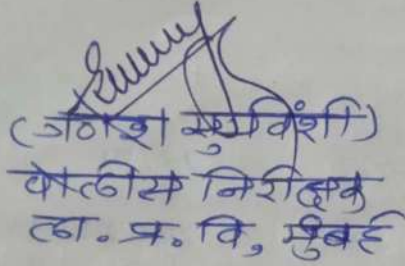 (गणेश सुर्यवंशी)
पोलीस निरीक्षक
ला. प्र. वि, मुंबई